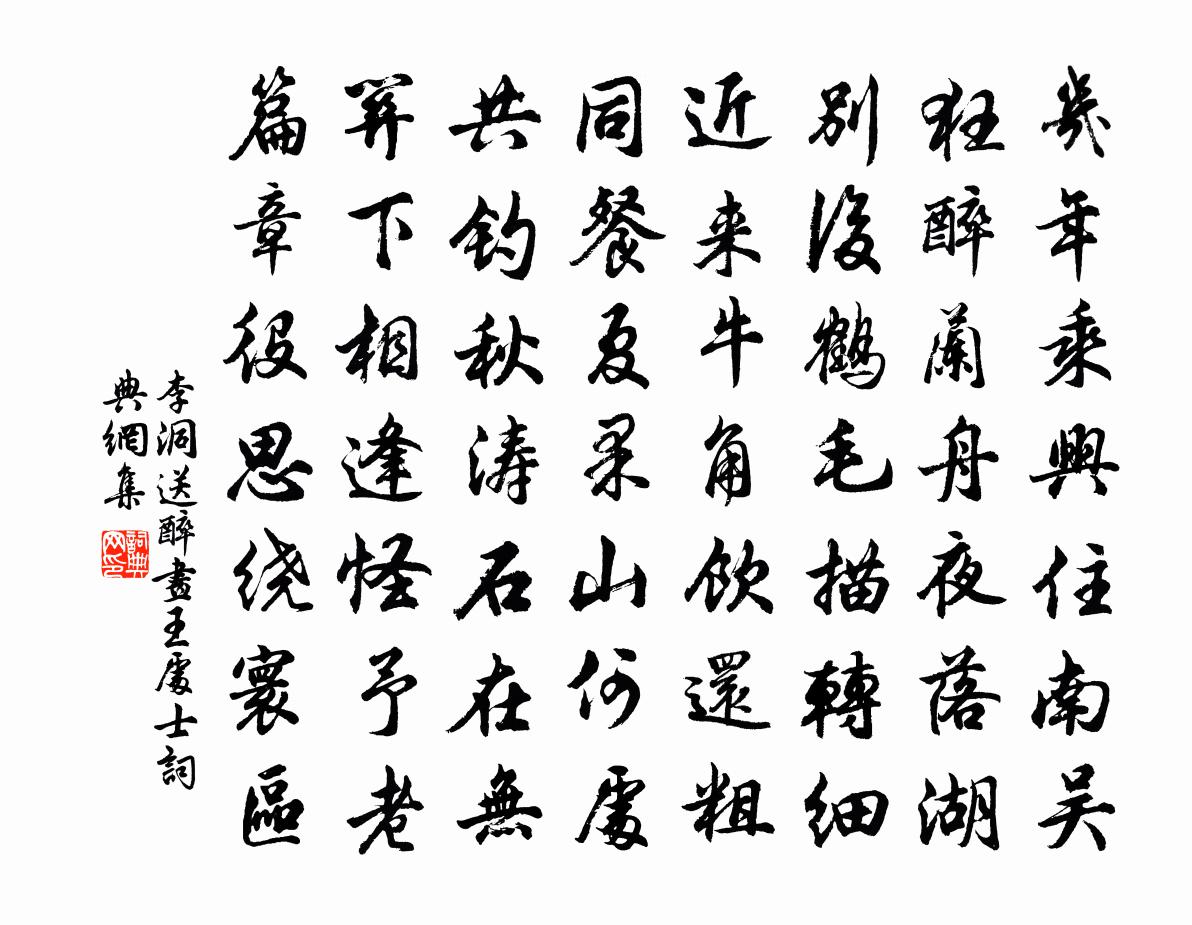 幾年乘興住南吴
狂醉蘭舟夜落湖
别後鶴毛描轉細
近来牛角飲還粗
同餐夏果山何處
共钓秋涛石在無
关下相逢怪予老
篇章役思绕寰區
李洞送醉畫王處士詞
典網集
詞典网印